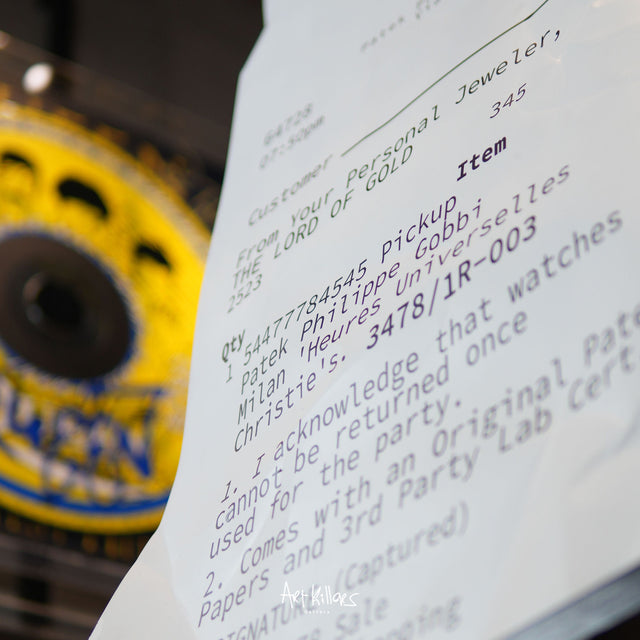 64728
07:50pm
Customer
From your Personal Jeweler,
THE LORD OF GOLD
2523
345
Qty
Item
1 54477784545 Pickup
Patek Philippe Gobbi
Milan 'Heures Universelles
Christie's. 3478/1R-003
1. I acknowledge that watches
cannot be returned once
used for the party.
2. Comes with an Original Pate
Papers and 3rd Party Lab Cert
IGNATUR (Captured)
Sale
Art Killers